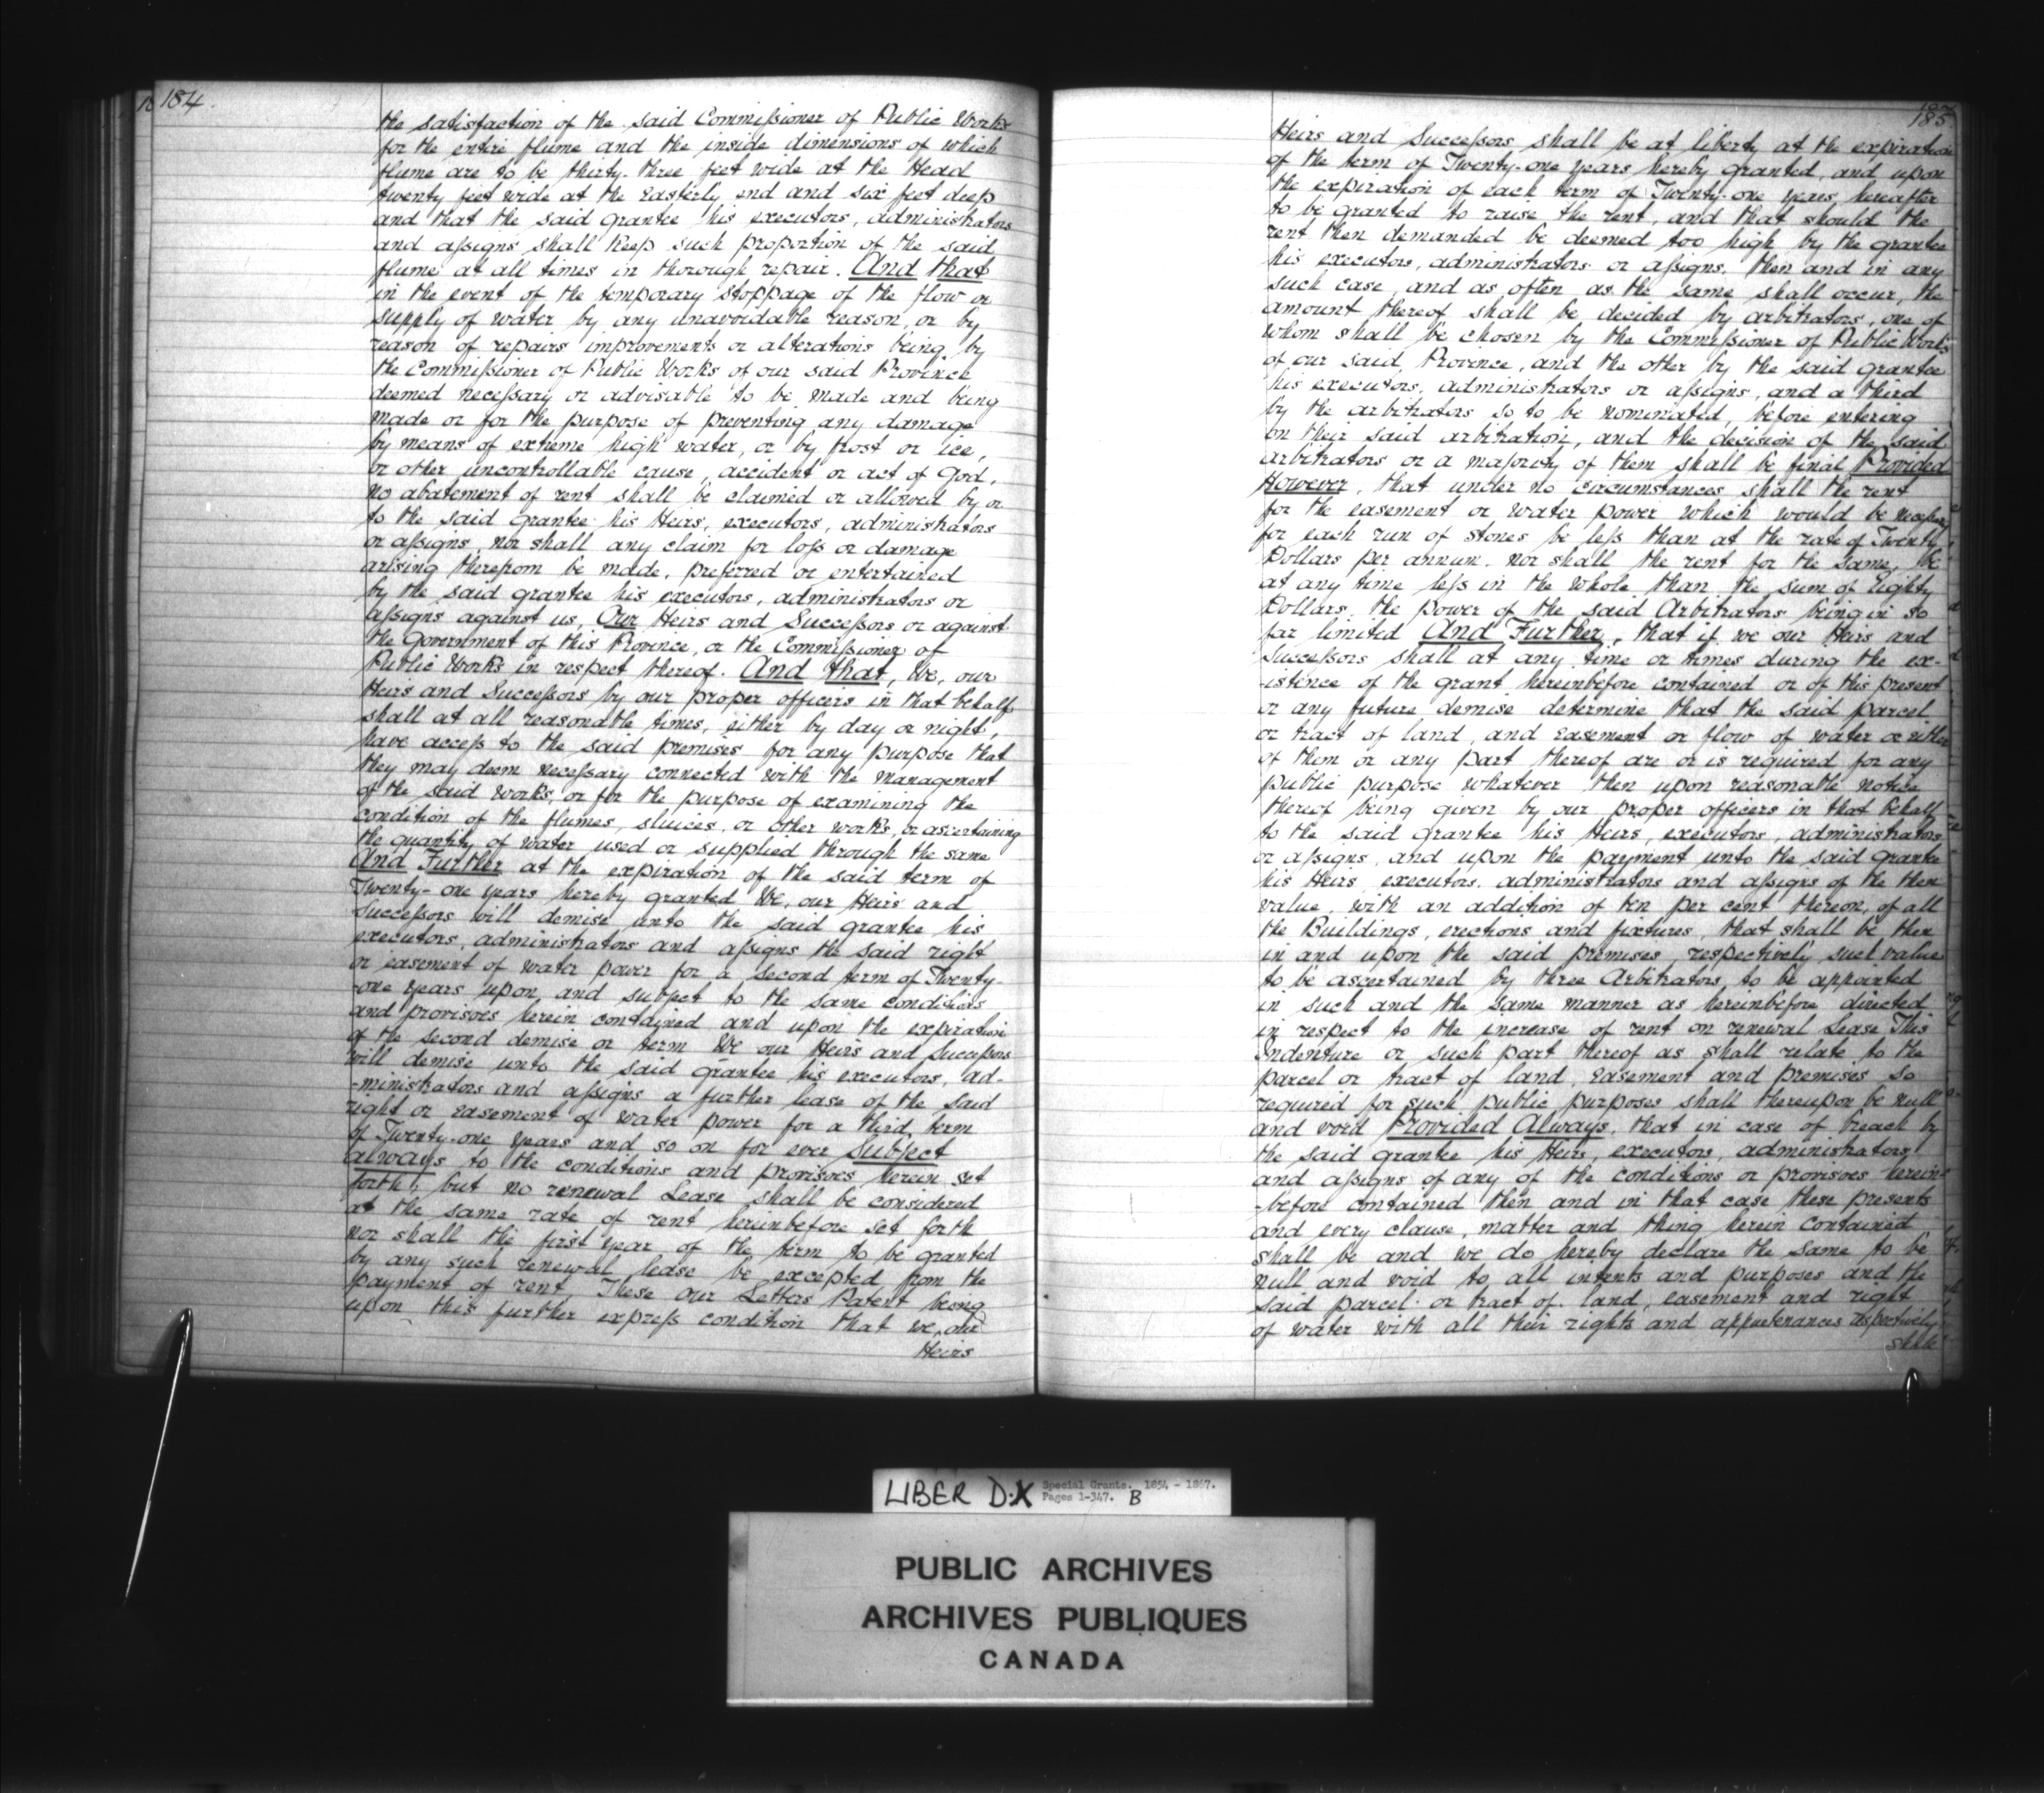 184.
the satisfaction of the said Commissioner of Public Works
for the entire flume and the inside dimensions of which
flume are to be thirty-three feet wide at the Head
twenty feet wide at the Easterly end and six feet deep
and that the said grantee his executors, administrators
and assigns shall keep such proportion of the said
flume at all times in thorough repair. And that
in the event of the temporary stoppage of the flow or
supply of water by any unavoidable reason, or by
reason of repairs improvements or alterations being by
the Commissioner of Public Works of our said Province
deemed necessary or advisable to be made and being
made or for the purpose of preventing any damage
by means of extreme high water, or by frost or ice,
or other uncontrollable cause, accident or act of God,
no abatement of rent shall be claimed or allowed by or
to the said grantee his Heirs, executors, administrators
or assigns, nor shall any claim for loss or damage
arising therefrom be made, preferred or entertained
by the said grantee his executors, administrators or
assigns against us, Our Heirs and Successors or against
the Government of this Province, or the Commissioner of
Public Works in respect thereof. And that, We, our
Heirs and Successors by our proper officers in that behalf
shall at all reasonable times, either by day or night,
have access to the said premises for any purpose that
they may deem necessary connected with the management
of the said works, or for the purpose of examining the
condition of the flumes, sluices, or other works, or ascertaining
the quantity of water used or supplied through the same
And Further at the expiration of the said term of
Twenty-one years hereby granted We, our Heirs and
Successors will demise unto the said grantee his
executors, administrators and assigns the said right
or easement of water power for a second term of Twenty-
-one years upon, and subject to the same conditions
and provisoes herein contained and upon the expiration
of the second demise or term We our Heirs and Successors
will demise unto the said grantee his executors, ad-
-ministrators and assigns a further lease of the said
right or easement of water power for a third term
of Twenty-one years and so on for ever Subject
always to the conditions and provisoes herein set
forth; but no renewal Lease shall be considered
at the same rate of rent hereinbefore set forth
nor shall the first year of the term to be granted
by any such renewal lease be excepted from the
payment of rent, These Our Letters Patent being
upon this further express condition that we, our
Heirs
185.
Heirs and Successors, shall be at liberty at the expiration
of the term of Twenty-one years hereby granted, and upon
the expiration of each term of Twenty-one years, hereafter
to be granted to raise the rent, and that should the
rent then demanded be deemed too high by the grantee
his executors, administrators or assigns. then and in any
such case, and as often as the same shall occur, the
amount thereof shall be decided by arbitrators, one of
whom shall be chosen by the Commissioner of Public Works
of our said, Province, and the other by the said grantee
his executors, administrators or assigns, and a third
by the arbitrators so to be nominated, before entering
on their said arbitration, and the decision of the said
arbitrators or a majority of them shall be final Provided
However, that under no circumstances shall the rent
for the easement or water power which would be necessary
for each run of stones be less than at the rate of Twenty
Dollars per annum. nor shall the rent for the same, be
at any time less in the whole than the sum of Eighty
Dollars, the power of the said Arbitrators being in so
far limited And Further, that if we our Heirs and
Successors shall at any time or times during the ex-
-istence of the grant hereinbefore contained or of this present
or any future demise determine that the said parcel
or tract of land, and easement or flow of water or either
of them or any part thereof are or is required for any
public purpose whatever then upon reasonable notice
thereof being given by our proper officers in that behalf
to the said grantee his Heirs, executors, administrators
or assigns, and upon the payment unto the said grantee
his Heirs, executors, administrators and assigns of the then
value, with an addition of ten per cent thereon, of all
the Buildings, erections and fixtures, that shall be then
in and upon the said premises, respectively such value
to be ascertained by three Arbitrators to be appointed
in such and the same manner as hereinbefore directed
in respect to the increase of rent on renewal Lease This
Indenture or such part thereof as shall relate to the
parcel or tract of land, easement and premises so
required for such public purposes shall thereupon be null
and void Provided Always, that in case of breach by
the said grantee his Heirs, executors, administrators
and assigns of any of the conditions or provisoes herein-
-before contained then and in that case these presents
and every clause, matter and thing herein contained
shall be and we do hereby declare the same to be
null and void to all intents and purposes and the
said parcel or tract of land, easement and right
of water with all their rights and appurtenances respectively
shall
LIBER D.X Special Grants. 1854 - 1867.
Pages 1-347. B
PUBLIC ARCHIVES
ARCHIVES PUBLIQUES
CANADA